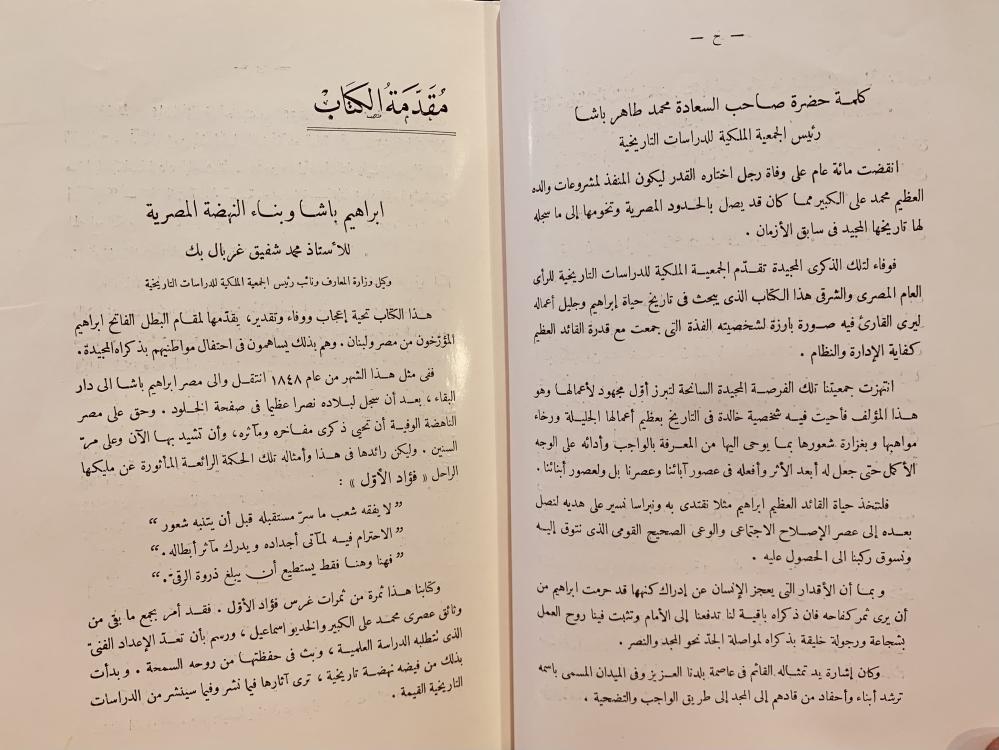 — خ —
كلمة حضرة صاحب السعادة محمد طاهر باشا
رئيس الجمعية الملكية للدراسات التاريخية
انقضت مائة عام على وفاة رجل اختاره القدر ليكون المنفذ لمشروعات والده
العظيم محمد على الكبير مما كان قد يصل بالحدود المصرية وتخومها إلى ما سجله
لها تاريخها المجيد فى سابق الأزمان .
فوفاء لتلك الذكرى المجيدة تقدّم الجمعية الملكية للدراسات التاريخية للرأى
العام المصرى والشرقى هذا الكتاب الذى يبحث فى تاريخ حياة إبراهيم وجليل أعماله
ليرى القارئ فيه صورة بارزة لشخصيته الفذة التى جمعت مع قدرة القائد العظيم
كفاية الإدارة والنظام .
انتهزت جمعيتنا تلك الفرصة المجيدة السانحة لتبرز أوّل مجهود لأعمالها وهو
هذا المؤلف فأحيت فيه شخصية خالدة فى التاريخ بعظيم أعمالها الجليلة ورخاء
مواهبها وبغزارة شعورها بما يوحى اليها من المعرفة بالواجب وأدائه على الوجه
الأكمل حتى جعل له أبعد الأثر وأفعله فى عصور آبائنا وعصرنا بل ولعصور أبنائنا .
فلنتخذ حياة القائد العظيم ابراهيم مثلا نقتدى به ونبراسا نسير على هديه لنصل
بعده إلى عصر الإصلاح الاجتماعى والوعى الصحيح القومى الذى نتوق إليه
ونسوق ركبنا الى الحصول عليه .
وبما أن الأقدار التى يعجز الإنسان عن إدراك كنهها قد حرمت ابراهيم من
أن يرى ثمر كفاحه فان ذكراه باقية لنا تدفعنا إلى الأمام وتثبت فينا روح العمل
بشجاعة ورجولة خليقة بذكراه لمواصلة الجدّ نحو المجد والنصر .
وكان إشارة يد تمثاله القائم فى عاصمة بلدنا العزيز وفى الميدان المسمى باسمه
ترشد أبناء وأحفاد من قادهم إلى المجد إلى طريق الواجب والتضحية .
مُقَدِّمَةُ الكِتَابْ
ابراهيم باشا وبناء النهضة المصرية
للأستاذ محمد شفيق غربال بك
وكيل وزارة المعارف ونائب رئيس الجمعية الملكية للدراسات التاريخية
هذا الكتاب تحية إعجاب ووفاء وتقدير، يقدّمها لمقام البطل الفاتح ابراهيم
المؤرّخون من مصر ولبنان . وهم بذلك يساهمون فى احتفال مواطنيهم بذكراه المجيدة .
ففى مثل هذا الشهر من عام ١٨٤٨ انتقل والى مصر ابراهيم باشا الى دار
البقاء ، بعد أن سجل لبلاده نصرا عظيما فى صفحة الخلود . وحق على مصر
الناهضة الوفية أن تحيى ذكرى مفاخره ومآثره، وأن تشيد بها الآن وعلى مرّ
السنين . وليكن رائدها فى هذا وأمثاله تلك الحكمة الرائعة المأثورة عن مليكها
الراحل « فؤاد الأوّل » :
” لا يفقه شعب ما سرّ مستقبله قبل أن يتنبه شعور “
” الاحترام فيه لمآتى أجداده ويدرك مآثر أبطاله . “
” فهنا وهنا فقط يستطيع أن يبلغ ذروة الرقىّ . “
وكتابنا هذا ثمرة من ثمرات غرس فؤاد الأوّل . فقد أمر بجمع ما بقى من
وثائق عصرى محمد على الكبير والخديو اسماعيل ، ورسم بأن تعدّ الإعداد الفنىّ
الذى تتطلبه الدراسة العلمية ، وبث فى حفظتها من روحه السمحة . وبدأت
بذلك من فيضه نهضة تاريخية ، ترى آثارها فيما نشر وفيما سينشر من الدراسات
التاريخية القيمة .